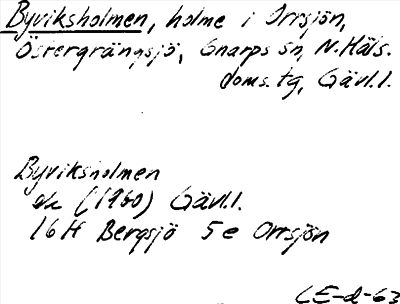 Byviksholmen, holme i Orrsjön,
Östergrängsjö, Gnarps sn, N. Häls.
doms. tg, Gävl. l.
Byviksholmen
ek (1960) Gävl. l.
16 H Bergsjö 5 e Orrsjön
CE-d-63